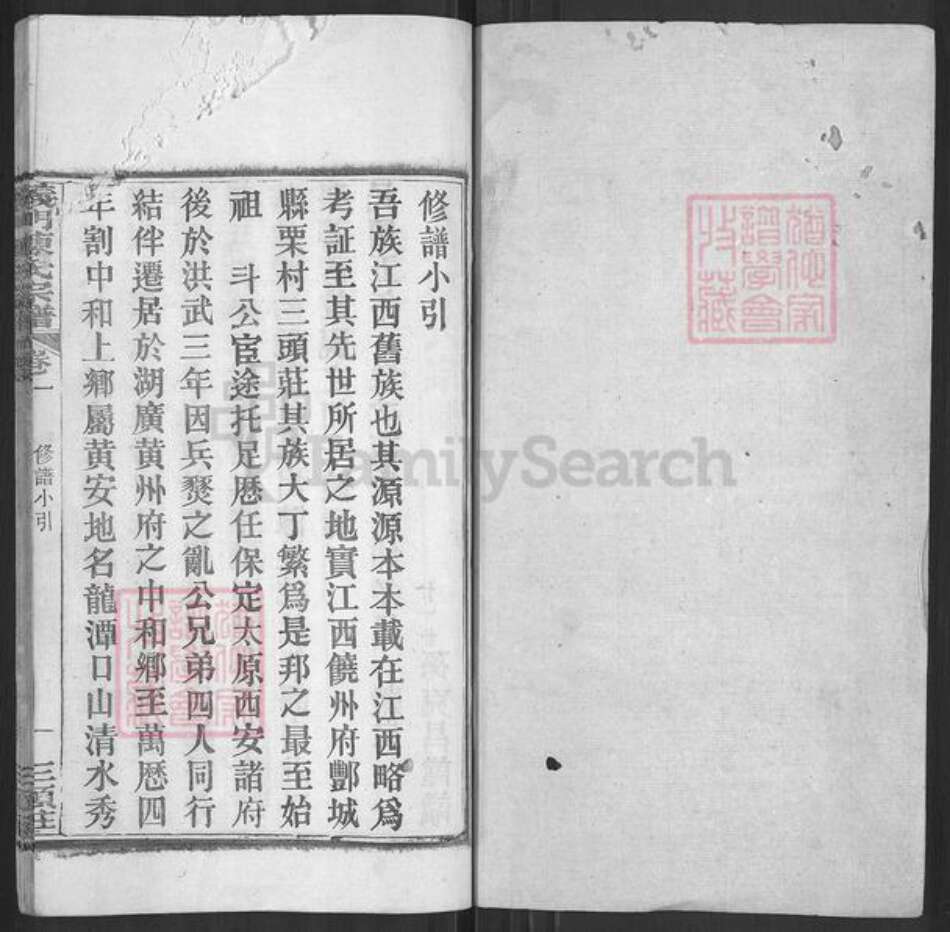 修譜小引
吾族江西舊族也其源源本本載在江西略爲
考証至其先世所居之地實江西饒州府酆城
縣栗村三頭莊其族大丁繁爲是邦之最至始
祖　斗公宦途托足歷任保定太原西安諸府
後於洪武三年因兵燹之亂公兄弟四人同行
結伴遷居於湖廣黄州府之中和鄉至萬歷四
年割中和上鄉屬黄安地名龍潭口山清水秀
義門陳氏宗譜
卷一
修譜小引
一
三頭莊
譜學會
收藏
FamilySearch